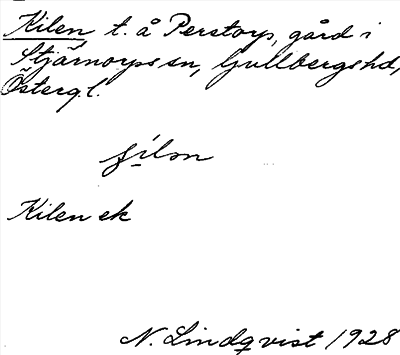 Kilen t. å Perstorp, gård i
Stjärnorps sn, Gullbergs hd,
Östergl.
Kilen ek
N. Lindqvist 1928